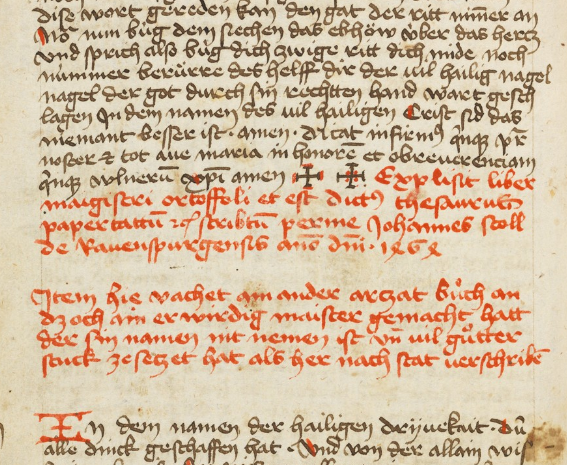 dise wort gereden kan den gat der ritt nimer an
Vor nim bùg dem siechen das ebhöw v̈ber das hercz
vnd sprich also bùg dich zwige ritt dich mide noch
nummer berùrre des helff dir der vil hailig nagel
nagel der got durch sin rechtten hand wart gesch
lagen In dem namen des vil hailigen Crist sid das
niemant besser ist · amen · dicat infirmꝰ qͥnqꝫ pr̄
noster ⁊ tot aue maria in honorē et obreuerenciam
qͥnqꝫ vlnerū xpī amen ✠ ✠ Explisit liber
maigistri ortoffoli et est dittꝰ thesaurus
papertattū scribtū perme Johannes Stoll
de Rauenspurgensis año dm̄i · 1464
Item hie vachet ain ander arczat bůch an
dz och ain erwirdig maister gemacht hatt
der sin namen nit nemen ist vn̄ vil gůtter
stuck ze seczet hat als her nach stat verschribē
In dem namen der hailigen driuekait · Dū
alle dinck geschaffen hat · Vnd von der allain wis